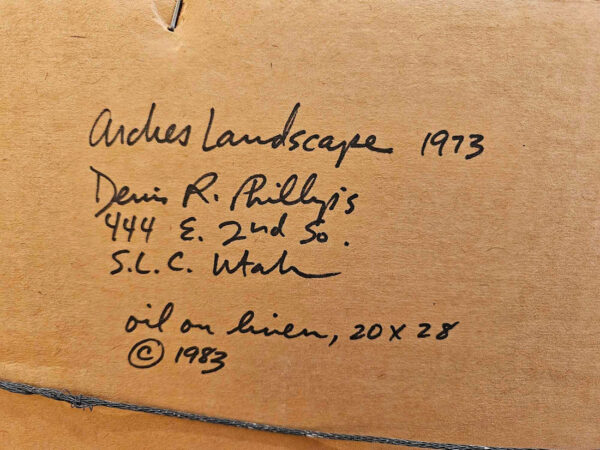 Arches Landscape 1973
Denis R. Phillips
444 E. 2nd So.
S.L.C. Utah
oil on linen, 20 x 28
© 1983